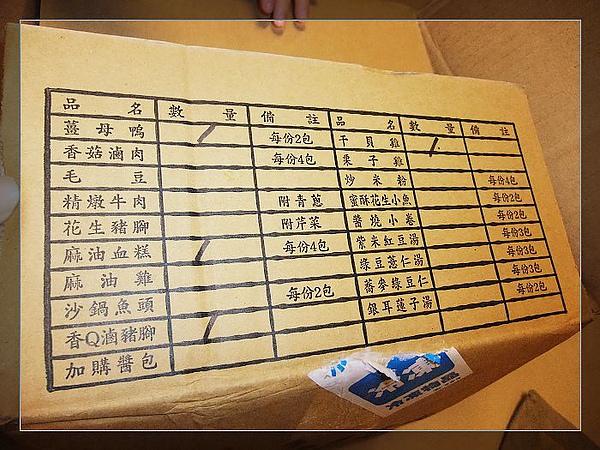 品名 數量 備註 品名 數量 備註
薑母鴨 / 每份2包 干貝雞 /
香菇滷肉 每份4包 栗子雞
毛豆 炒米粉 每份4包
精燉牛肉 附青蔥 蜜酥花生小魚 每份2包
花生豬腳 附芹菜 醬燒小卷 每份2包
麻油血糕 / 每份4包 紫米紅豆湯 每份2包
麻油雞 綠豆薏仁湯 每份3包
沙鍋魚頭 每份2包 蕎麥綠豆仁 每份3包
香Q滷豬腳 / 銀耳蓮子湯 每份2包
加購醬包